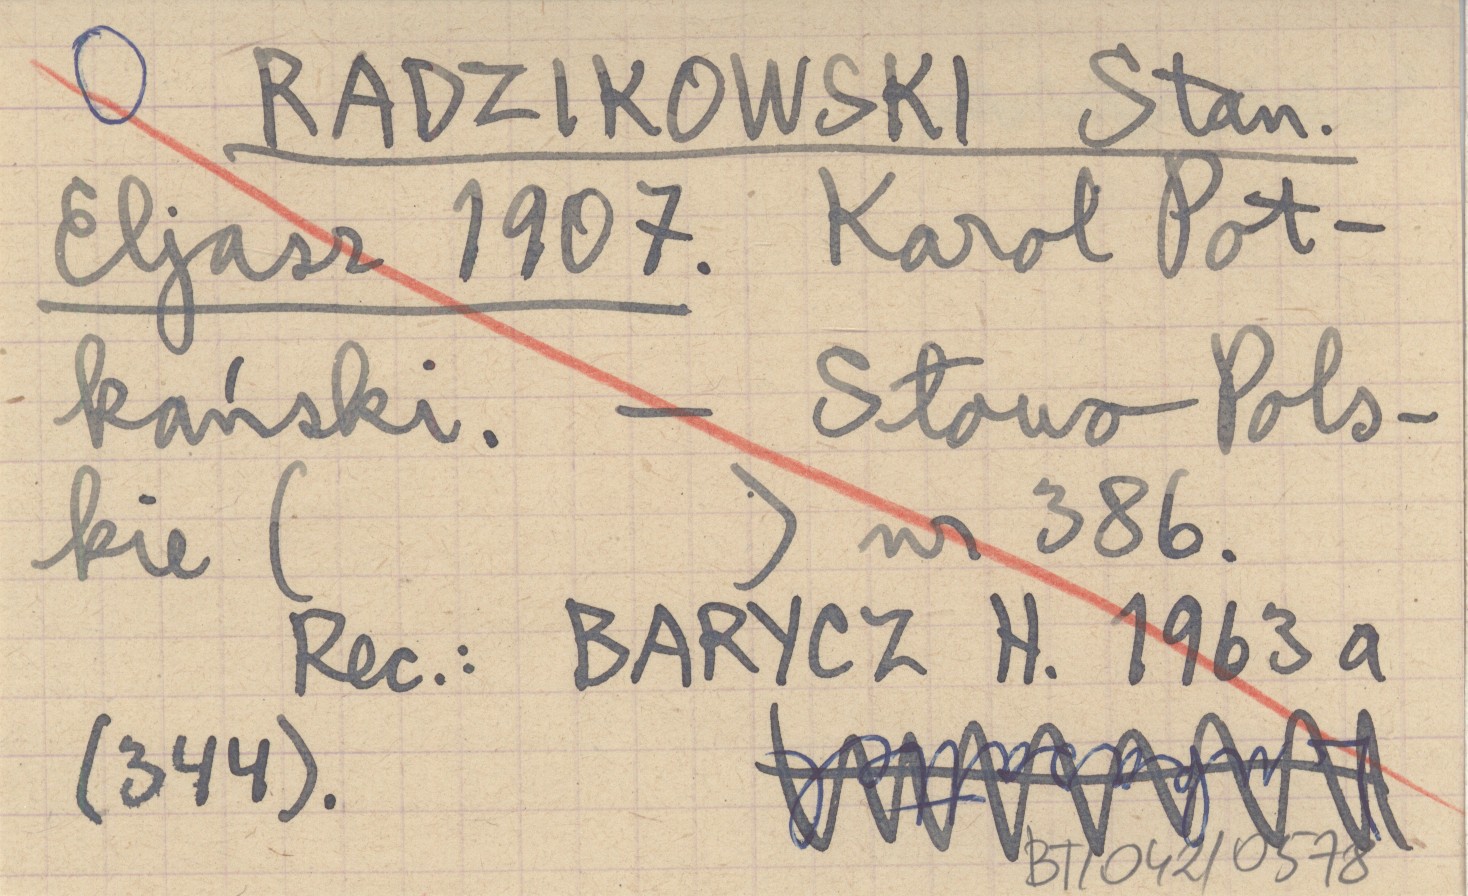 RADZIKOWSKI Stan.
Eljasz 1907. Karol Pot-
kański. — Słowo Pols-
kie ( ) nr 386.
Rec.: BARYCZ H. 1963a
(344).
BT/042/0578